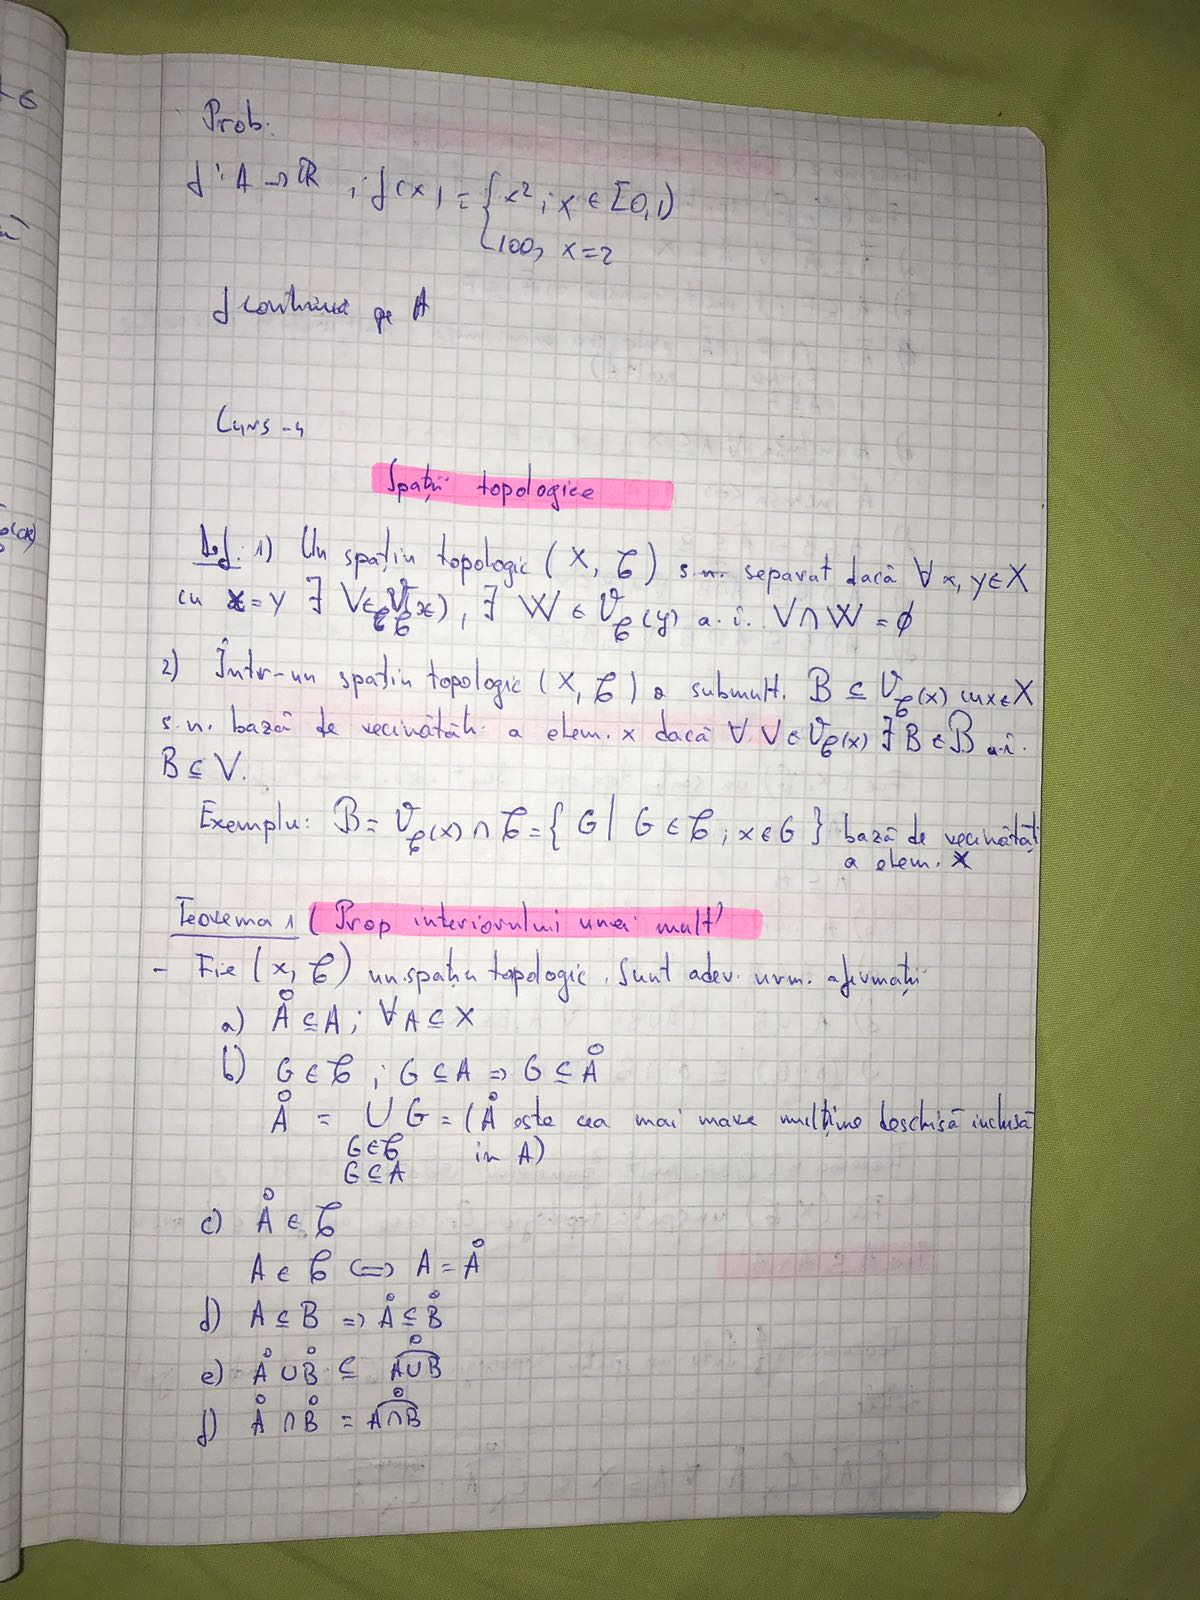 Prob.
f : A → ℝ , f(x) = { x² ; x ∈ [0,1)
100, x = 2
f continuă pe A
Curs - 4
Spații topologice
Def: 1) Un spațiu topologic (X, 𝒯) s.n. separat dacă ∀ x, y ∈ X
cu x = y ∃ V ∈ 𝒱_𝒯(x), ∃ W ∈ 𝒱_𝒯(y) a.î. V ∩ W = ∅
2) Într-un spațiu topologic (X, 𝒯) o submult. B ⊆ 𝒱_𝒯(x) cu x ∈ X
s.n. bază de vecinătăți a elem. x dacă ∀ V ∈ 𝒱_𝒯(x) ∃ B ∈ ℬ a.î.
B ⊆ V.
Exemplu: B = 𝒱_𝒯(x) ∩ 𝒯 = { G | G ∈ 𝒯 ; x ∈ G } bază de vecinătăți
a elem. x
Teorema 1 ( Prop interiorului unei mult)
- Fie (x, 𝒯) un spațiu topologic. Sunt adev. urm. afirmații
a) Å ⊆ A ; ∀ A ⊆ X
b) G ∈ 𝒯 ; G ⊆ A ⇒ G ⊆ Å
Å = ∪ G = ( Å este cea mai mare mulțime deschisă inclusă
G ∈ 𝒯 in A)
G ⊆ A
c) Å ∈ 𝒯
A ∈ 𝒯 ⇔ A = Å
d) A ⊆ B ⇒ Å ⊆ B̊
e) Å ∪ B̊ ⊆ \overset{\circ}{\overgroup{A ∪ B}}
f) Å ∩ B̊ = \overset{\circ}{\overgroup{A ∩ B}}